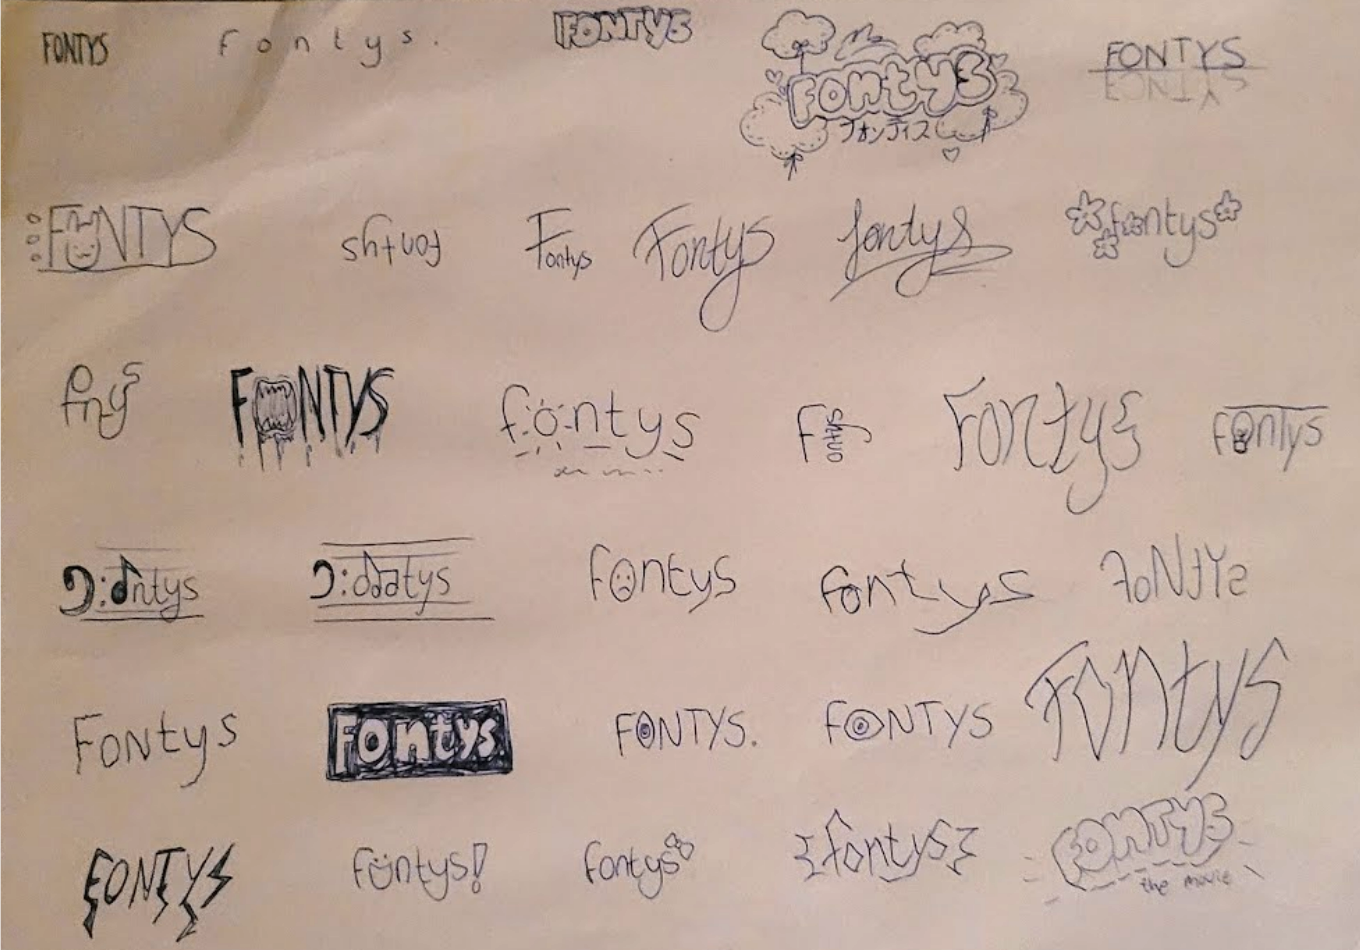 FONTYS
Fontys.
FONTYS
Fontys
フォンティス
FONTYS
FONTYS
FONTYS
fontys
Fontys
Fontys
fontys
fontys
FONTYS
fontys
Fontys
Fontys
fontys
fontys
fontys
FoNtYs
Fontys
Fontys
FONTYS.
FONTYS
Fontys
FONTYS
fontys!
fontys
fontys
FONTYS
the movie